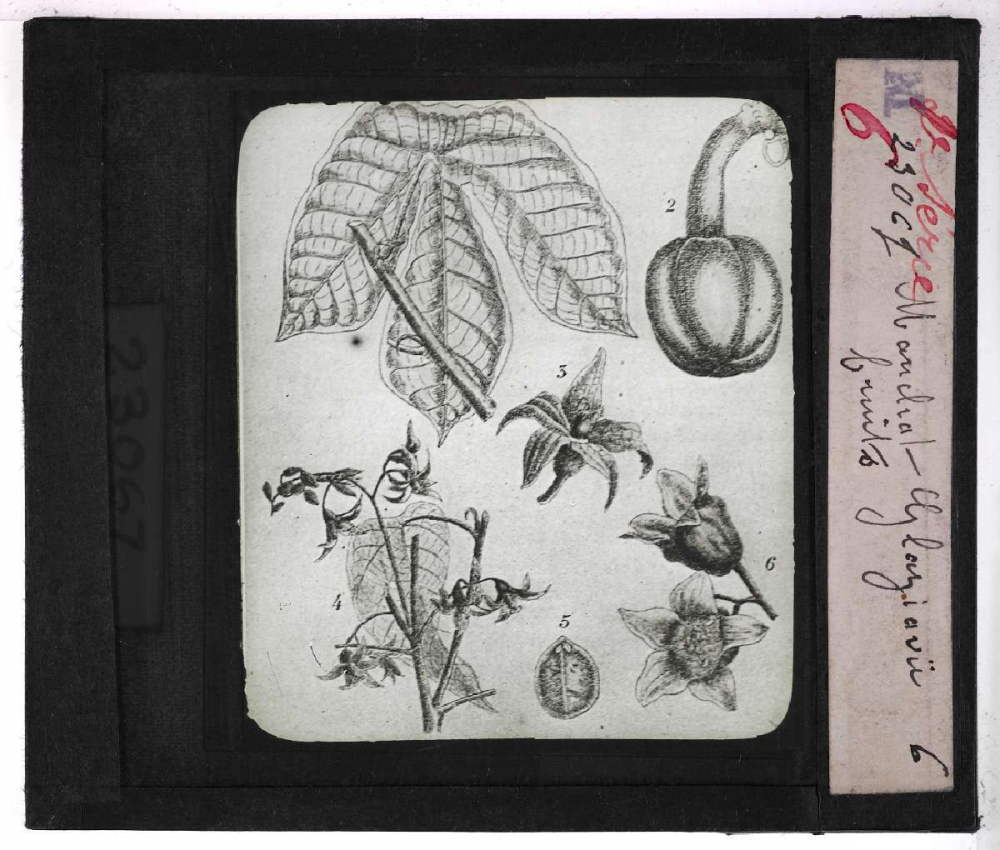 2e Série
23067 Manihot Glaziovii 6
fruits
6
23067
2
3
4
5
6